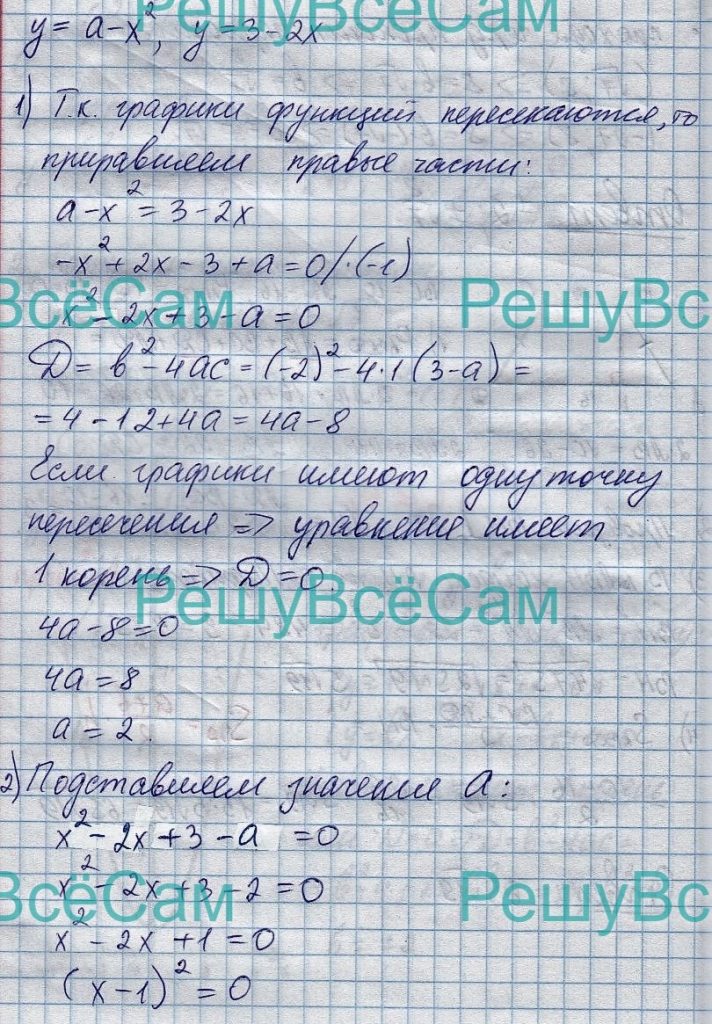 РешуВсёСам
y = a-x², y = 3-2x
1) Т.к. графики функций пересекаются, то
приравняем правые части:
a-x² = 3-2x
-x²+2x-3+a=0 /·(-1)
ВсёСам РешуВс
x²-2x+3-a=0
D = b²-4ac = (-2)²-4·1(3-a) =
= 4-12+4a = 4a-8
Если графики имеют одну точку
пересечения => уравнение имеет
1 корень => D=0.
РешуВсёСам
4a-8=0
4a=8
a=2.
2) Подставляем значение a:
x²-2x+3-a=0
x²-2x+3-2=0
ВсёСам РешуВс
x²-2x+1=0
(x-1)²=0